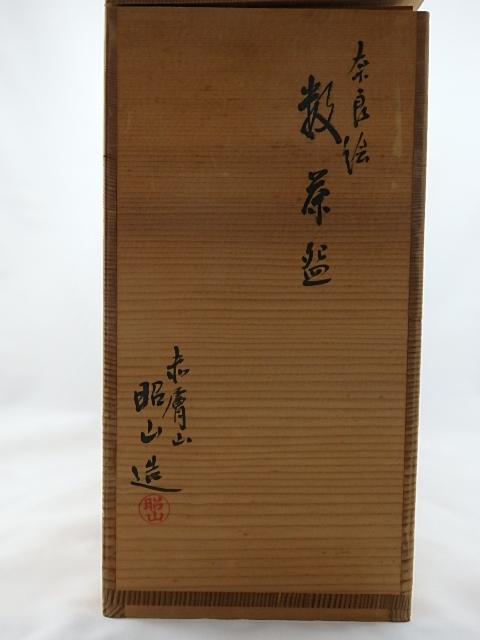 奈良絵
数茶盌
赤膚山
昭山造
昭山